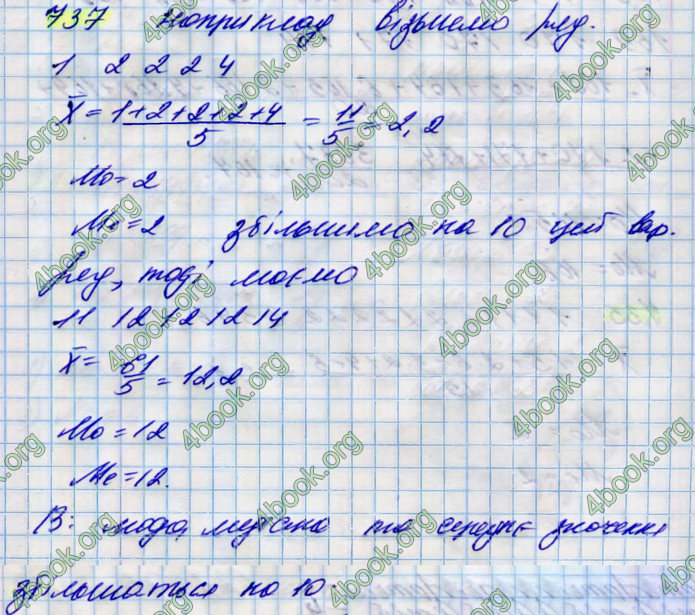 737 Наприклад візьмемо ряд.
1 2 2 2 4
x̄ = 1+2+2+2+4 / 5 = 11/5 = 2,2
Mo = 2
Me = 2 збільшимо на 10 цей вар.
ряд, тоді маємо
11 12 12 12 14
x̄ = 61/5 = 12,2
Mo = 12
Me = 12.
В: мода, медіана та середнє значення
збільшаться на 10.
4book.org